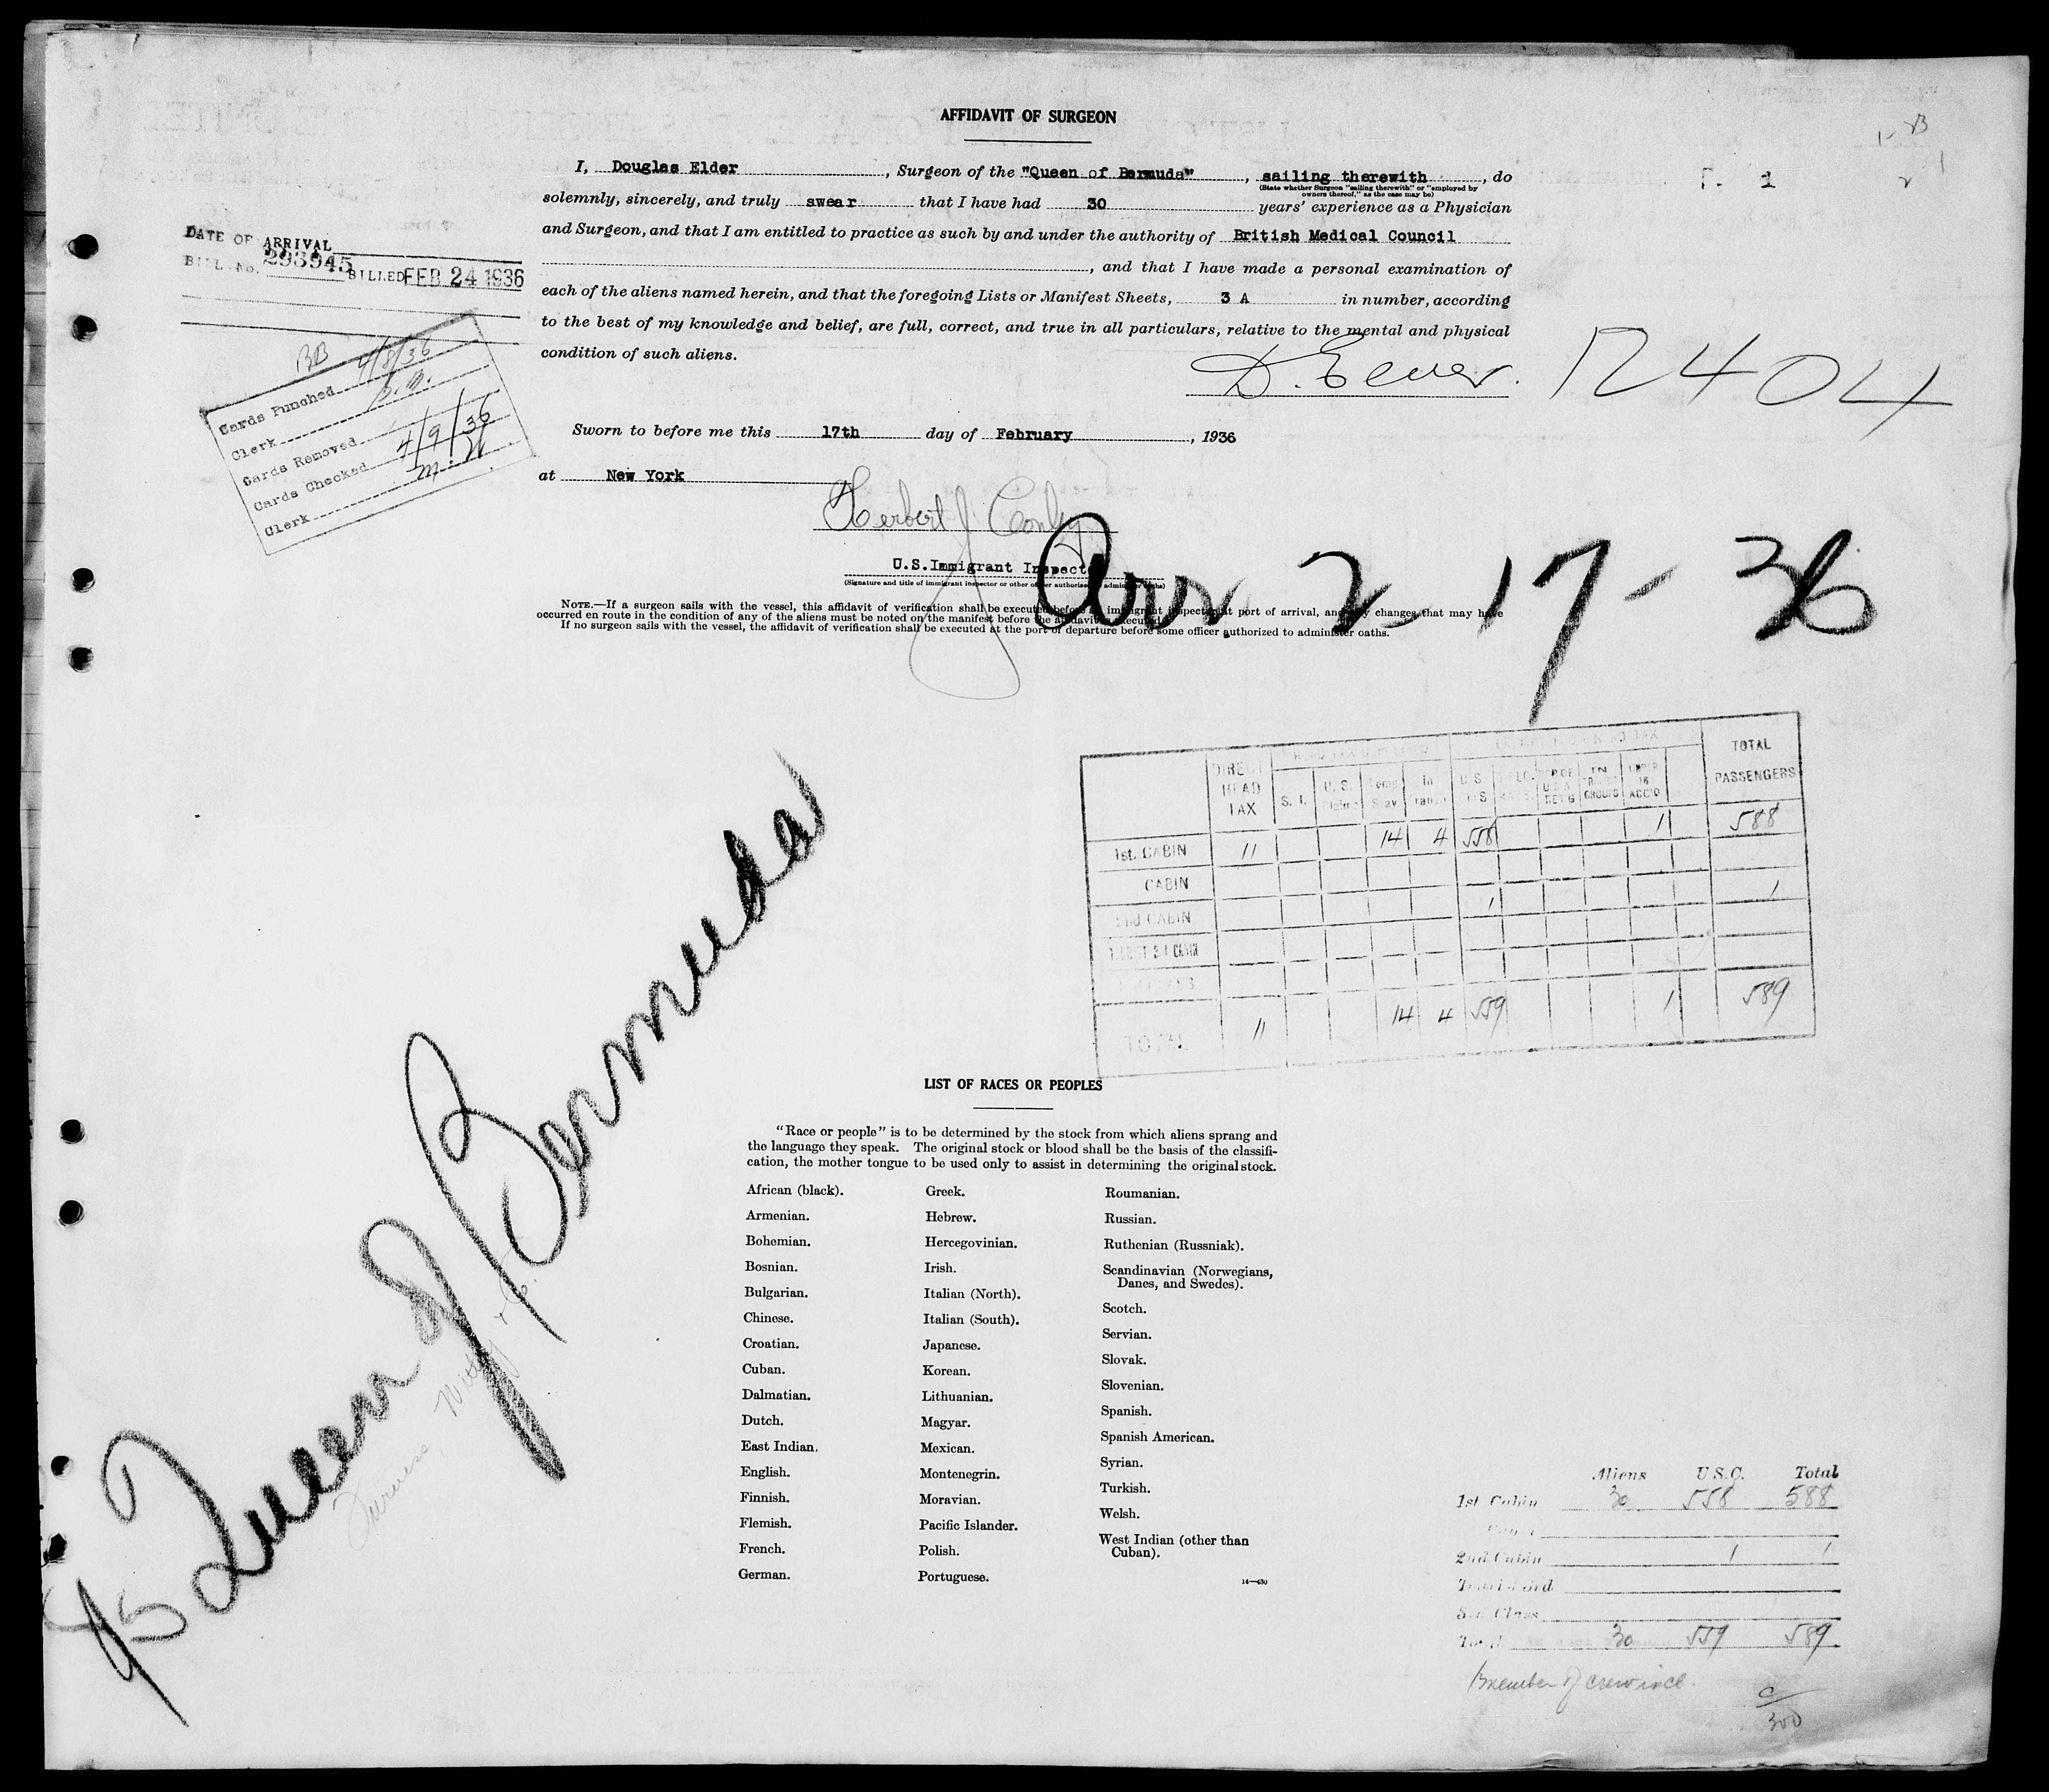 AFFIDAVIT OF SURGEON
I, Douglas Elder, Surgeon of the "Queen of Bermuda", sailing therewith, do
(State whether Surgeon "sailing therewith" or "employed by
owners thereof," as the case may be)
solemnly, sincerely, and truly swear that I have had 30 years' experience as a Physician
and Surgeon, and that I am entitled to practice as such by and under the authority of British Medical Council
, and that I have made a personal examination of
each of the aliens named herein, and that the foregoing Lists or Manifest Sheets, 3 A in number, according
to the best of my knowledge and belief, are full, correct, and true in all particulars, relative to the mental and physical
condition of such aliens.
12404
Sworn to before me this 17th day of February, 1936
at New York
Herbert J Conley
U.S.Immigrant Inspector
(Signature and title of immigrant inspector or other officer authorised to administer oaths)
Arr 2-17-36
NOTE.—If a surgeon sails with the vessel, this affidavit of verification shall be executed before an immigrant inspector at port of arrival, and any changes that may have
occurred en route in the condition of any of the aliens must be noted on the manifest before the affidavit is executed.
If no surgeon sails with the vessel, the affidavit of verification shall be executed at the port of departure before some officer authorized to administer oaths.
DATE OF ARRIVAL
BILL No. 293945 BILLED FEB 24 1936
BB
Cards Punched 4/8/36
Clerk
Cards Removed
Cards Checked 4/9/36
Clerk M.W.
DIRECT HEAD TAX S. I. U. S. Temp Stay In Transt U. S. IN GROUPS UNDER 16 ACC'D TOTAL PASSENGERS
1st. CABIN 11 14 4 558 1 588
CABIN
2nd CABIN 1 1
TOTAL 11 14 4 559 1 589
Queen of Bermuda
95
Furness, Withy & Co.
LIST OF RACES OR PEOPLES
"Race or people" is to be determined by the stock from which aliens sprang and
the language they speak. The original stock or blood shall be the basis of the classifi-
cation, the mother tongue to be used only to assist in determining the original stock.
African (black).
Armenian.
Bohemian.
Bosnian.
Bulgarian.
Chinese.
Croatian.
Cuban.
Dalmatian.
Dutch.
East Indian.
English.
Finnish.
Flemish.
French.
German.
Greek.
Hebrew.
Hercegovinian.
Irish.
Italian (North).
Italian (South).
Japanese.
Korean.
Lithuanian.
Magyar.
Mexican.
Montenegrin.
Moravian.
Pacific Islander.
Polish.
Portuguese.
Roumanian.
Russian.
Ruthenian (Russniak).
Scandinavian (Norwegians,
Danes, and Swedes).
Scotch.
Servian.
Slovak.
Slovenian.
Spanish.
Spanish American.
Syrian.
Turkish.
Welsh.
West Indian (other than
Cuban).
14—430
Aliens U.S.C. Total
1st Cabin 30 558 588
2nd Cabin 1 1
Total 30 559 589
member of crew incl.